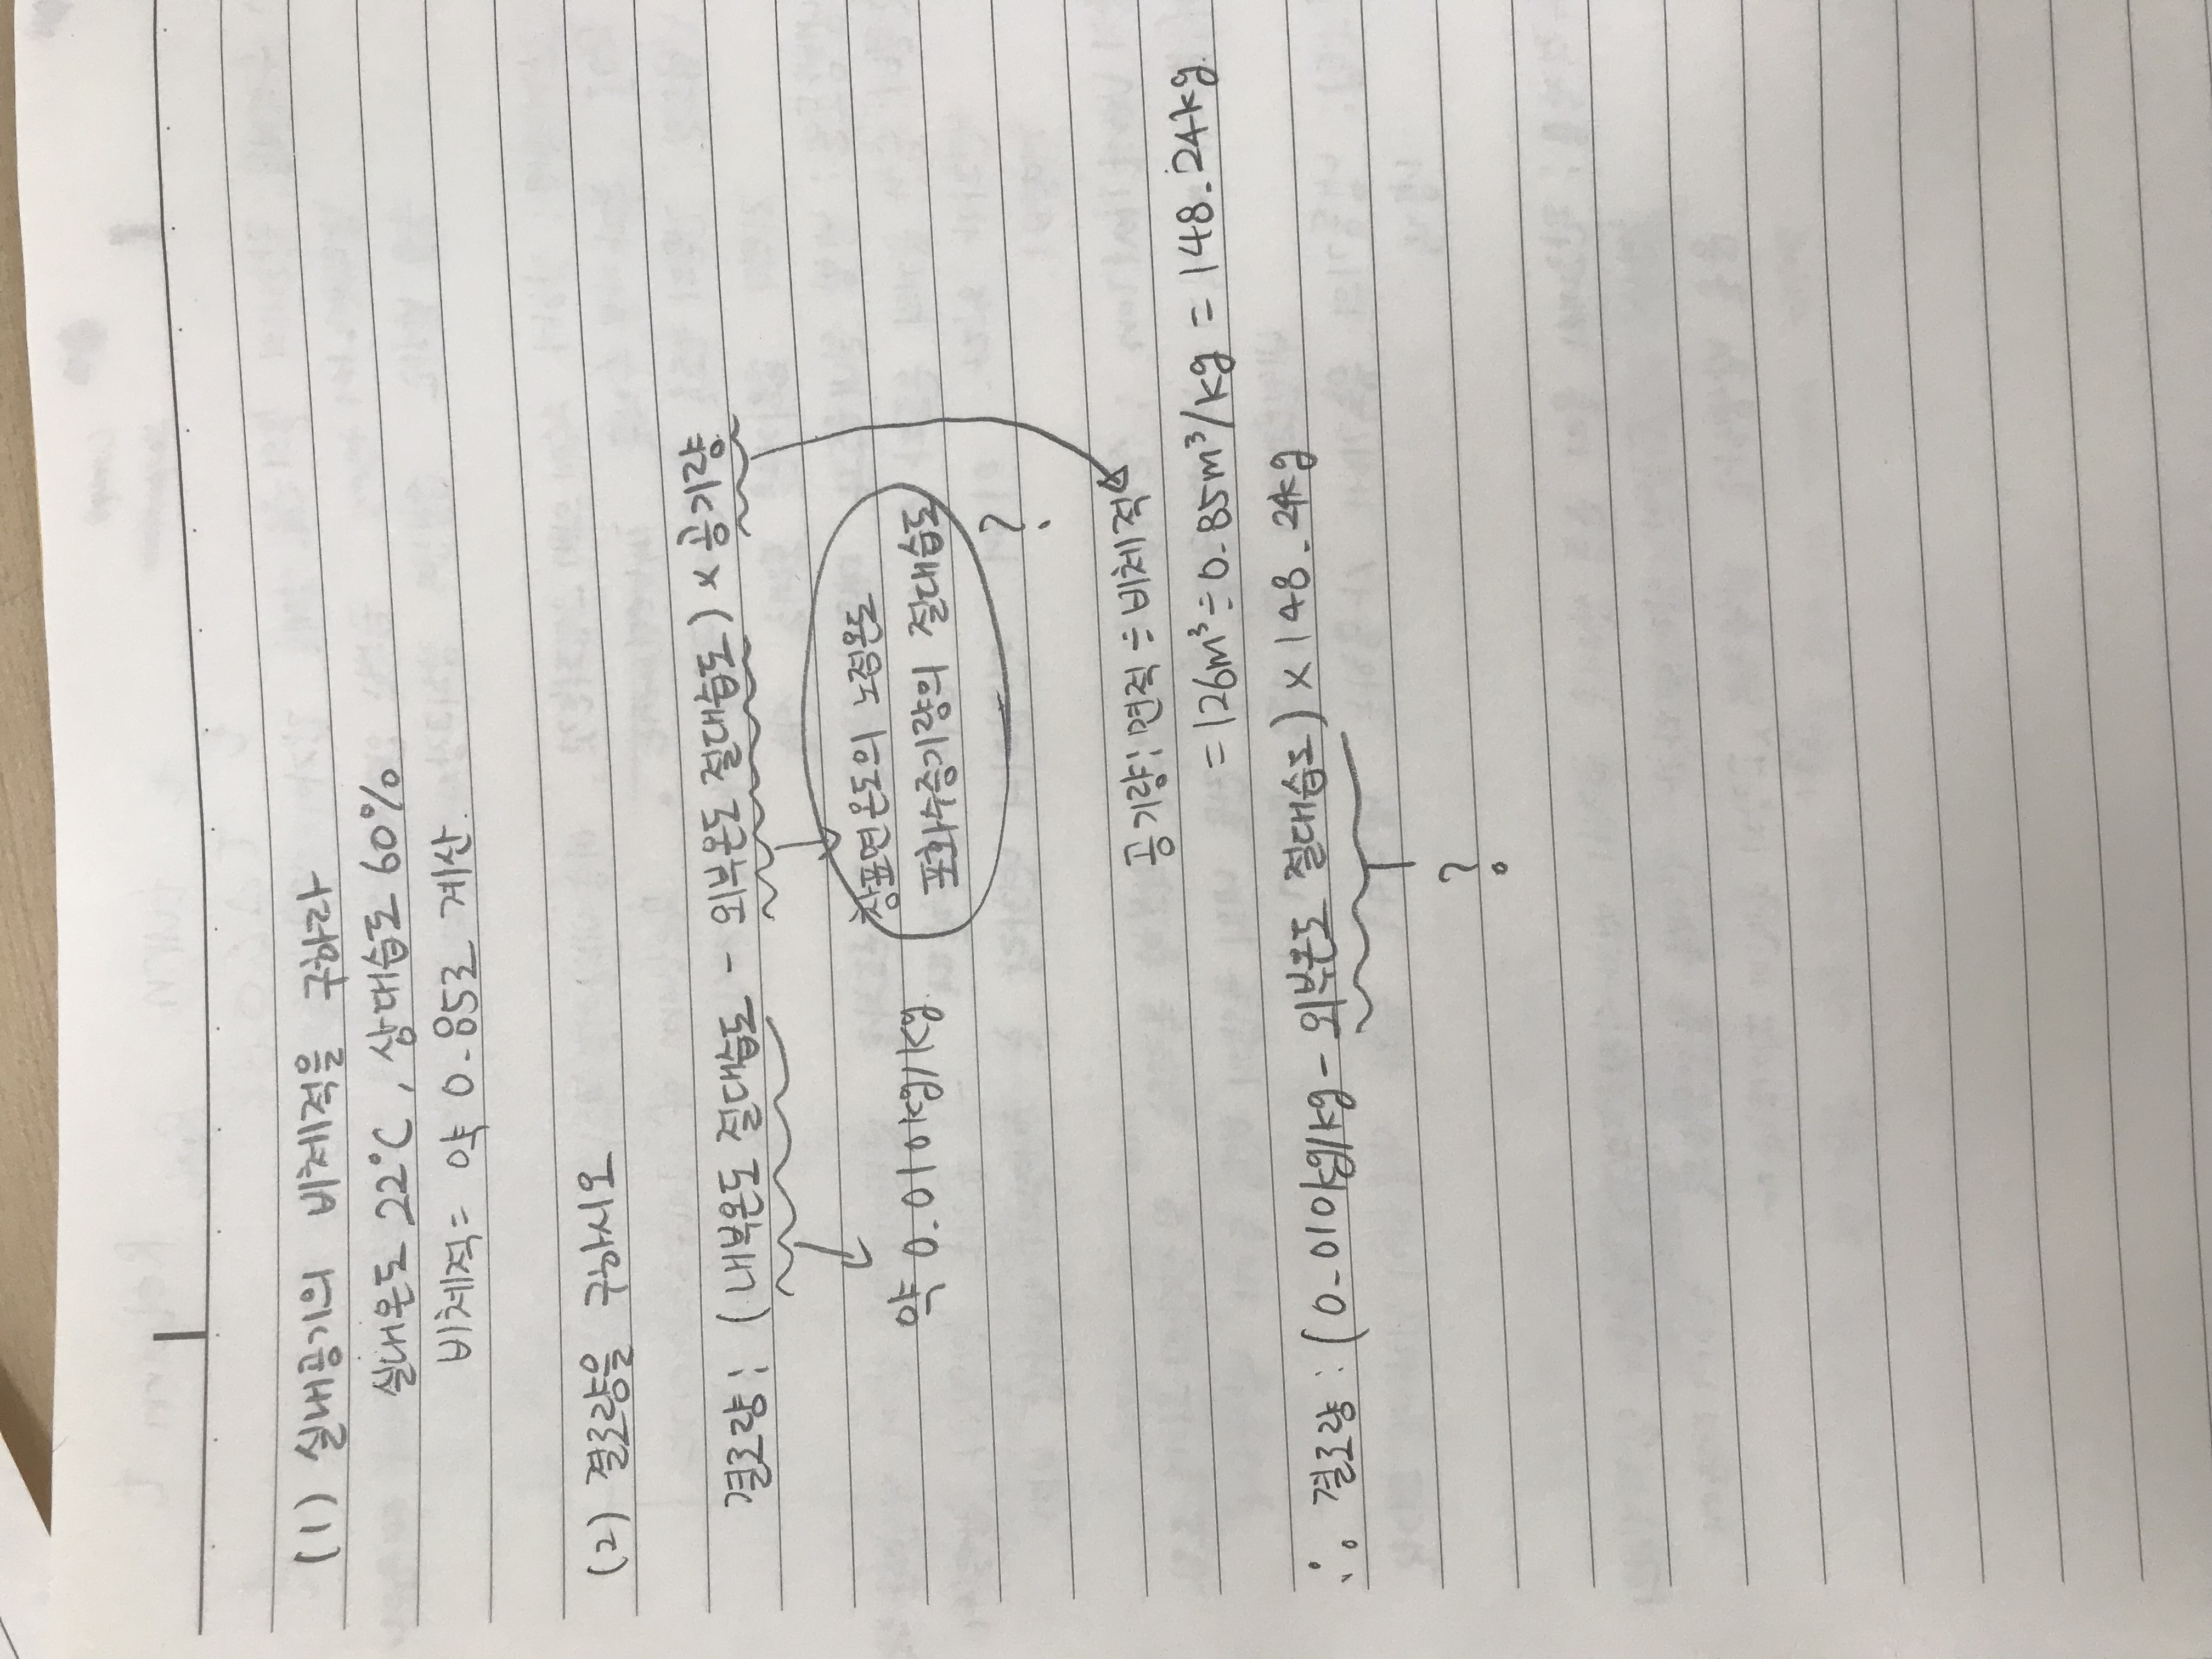 (1) 실내공기의 비체적을 구하라
실내온도 22°C, 상대습도 60%
비체적= 약 0.85로 계산
(2) 결로량을 구하시오
결로량: (내부온도 절대습도 - 외부온도 절대습도) × 공기량
약 0.010kg/kg
창표면온도의 노점온도
포화수증기량의 절대습도
?
공기량: 면적÷비체적
=126m³÷0.85m³/kg = 148.24kg
∴ 결로량: (0.010kg/kg - 외부온도 절대습도) × 148.24kg
?